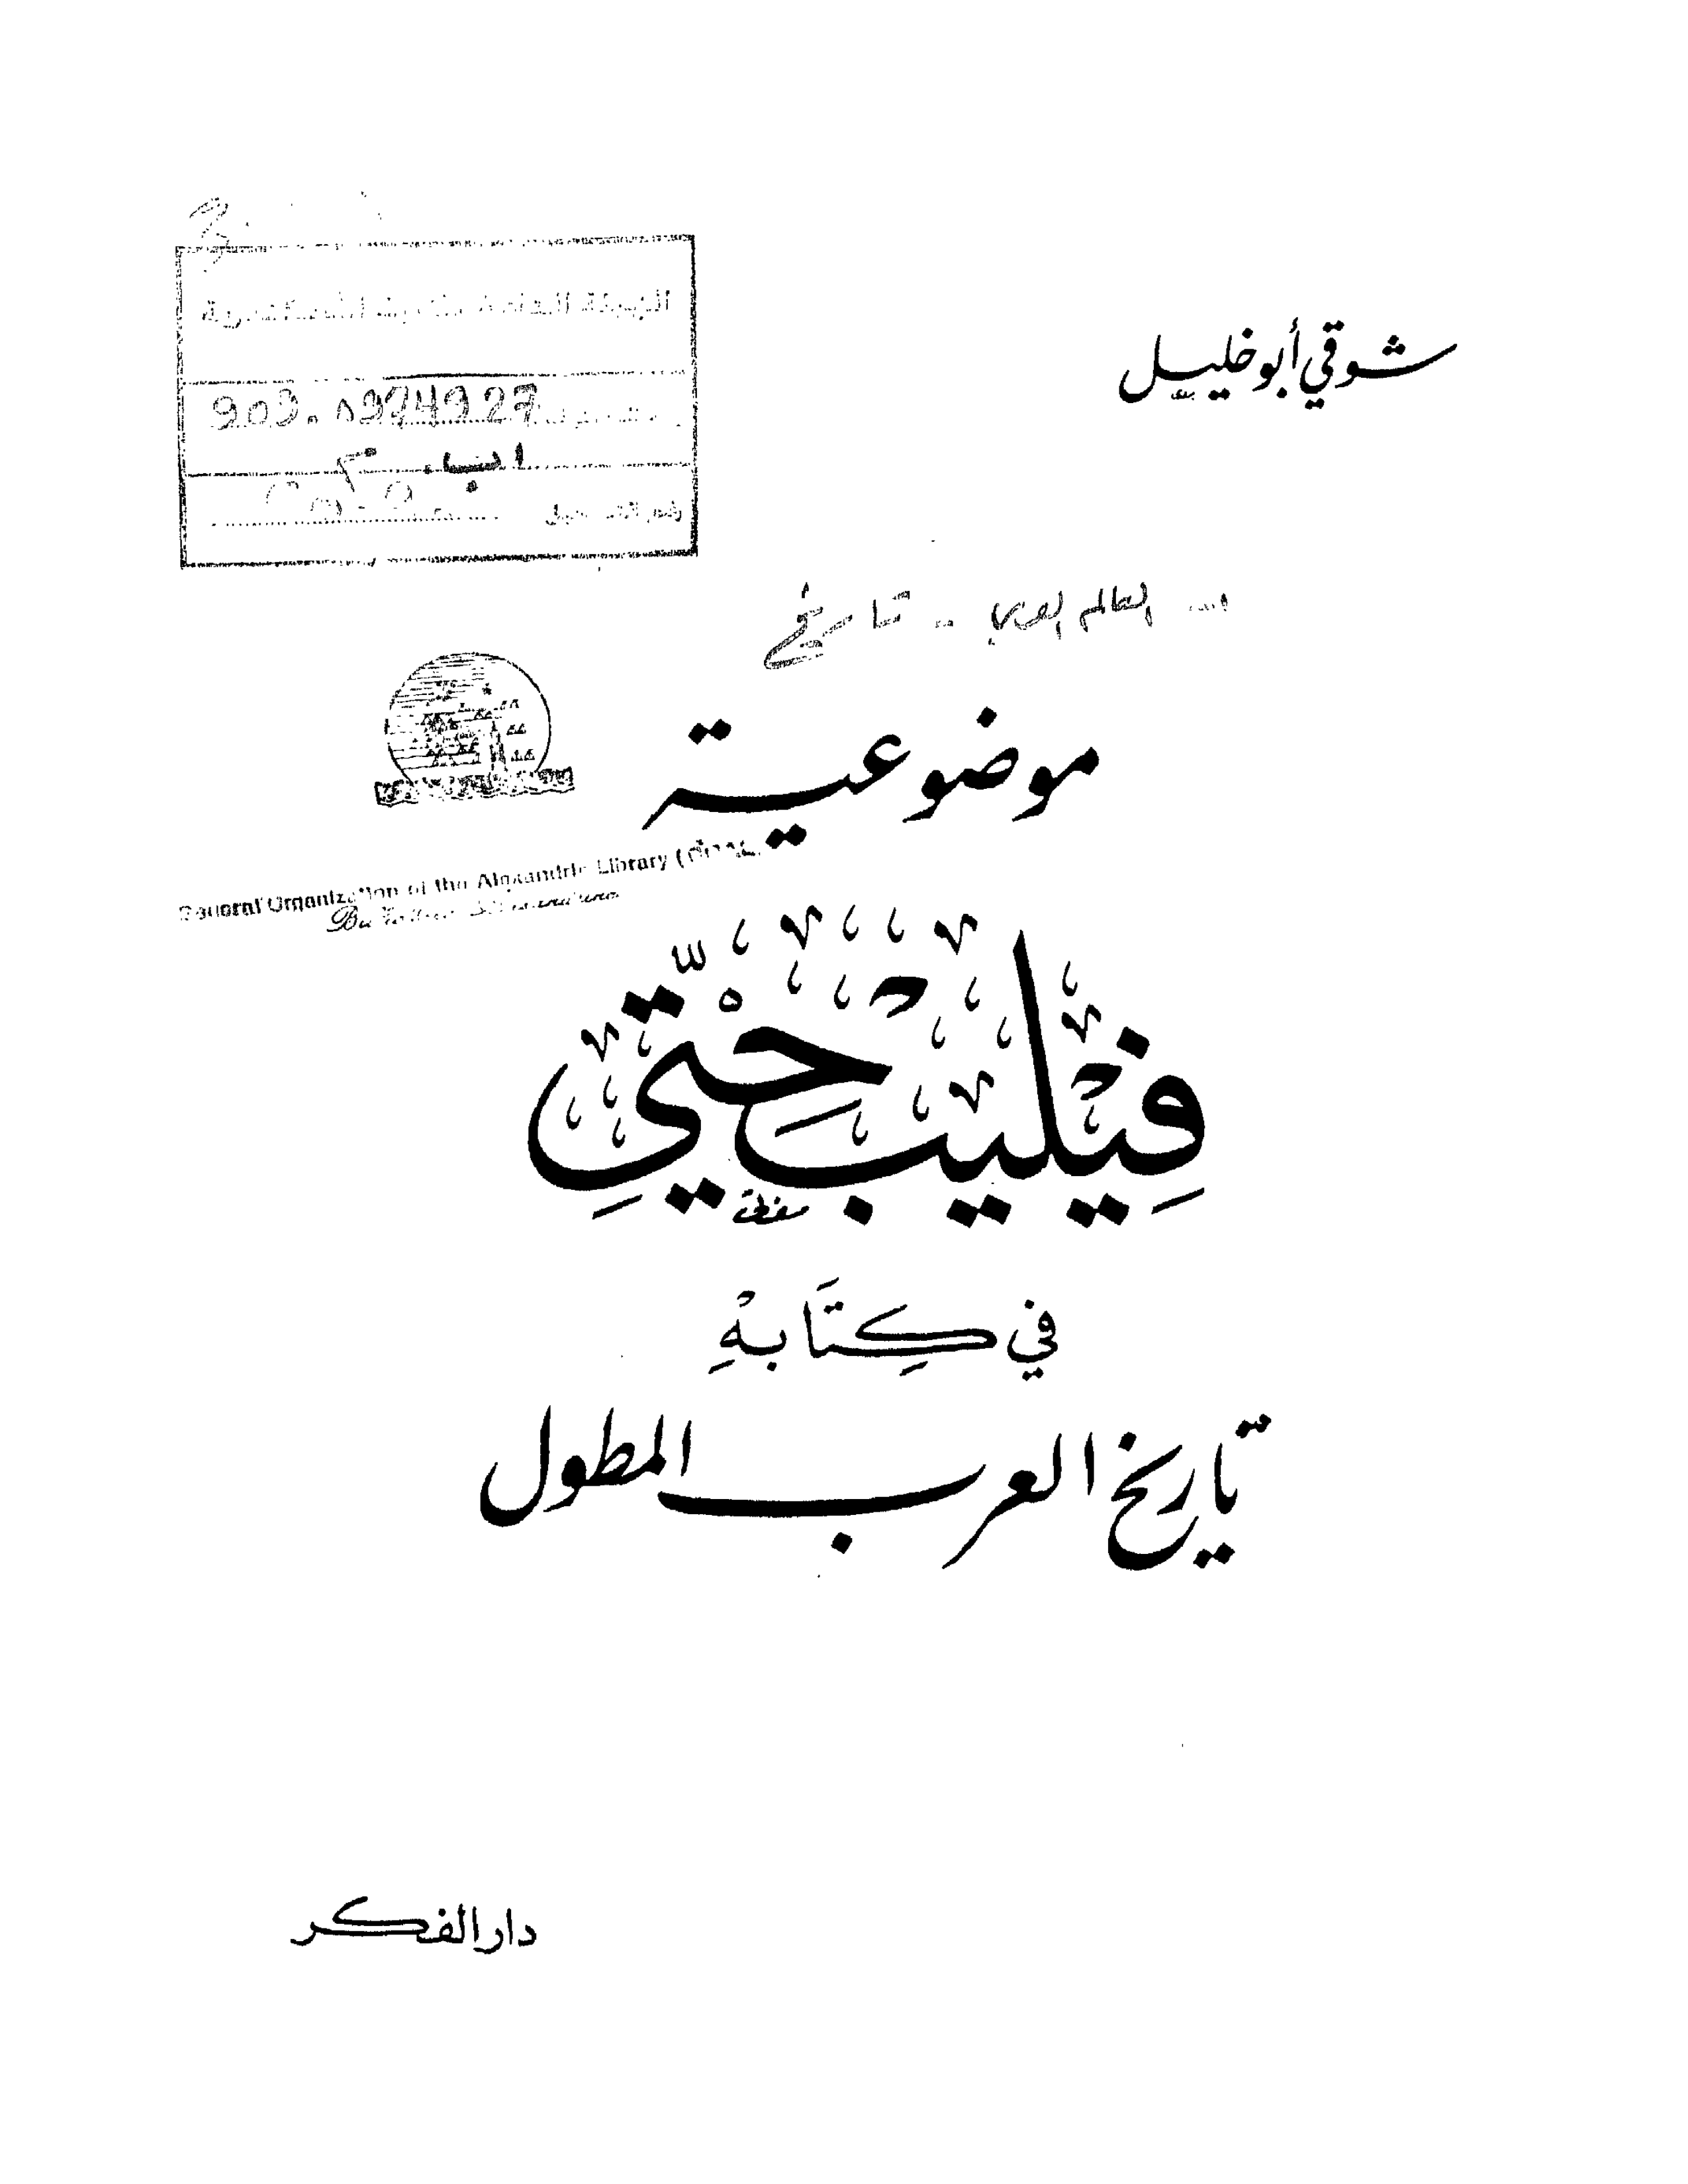 شوقي أبو خليل
الهيئة العامة لمكتبة الأسكندرية
909.0974927
اب. م
رقم التسجيل
العالم العربي - تاريخ
موضوعية
General Organization of the Alexandria Library
Bibliotheca Alexandrina
فِيْليبْ حِتِّي
في كِتَابهِ
تاريخ العرب المطول
دار الفكر